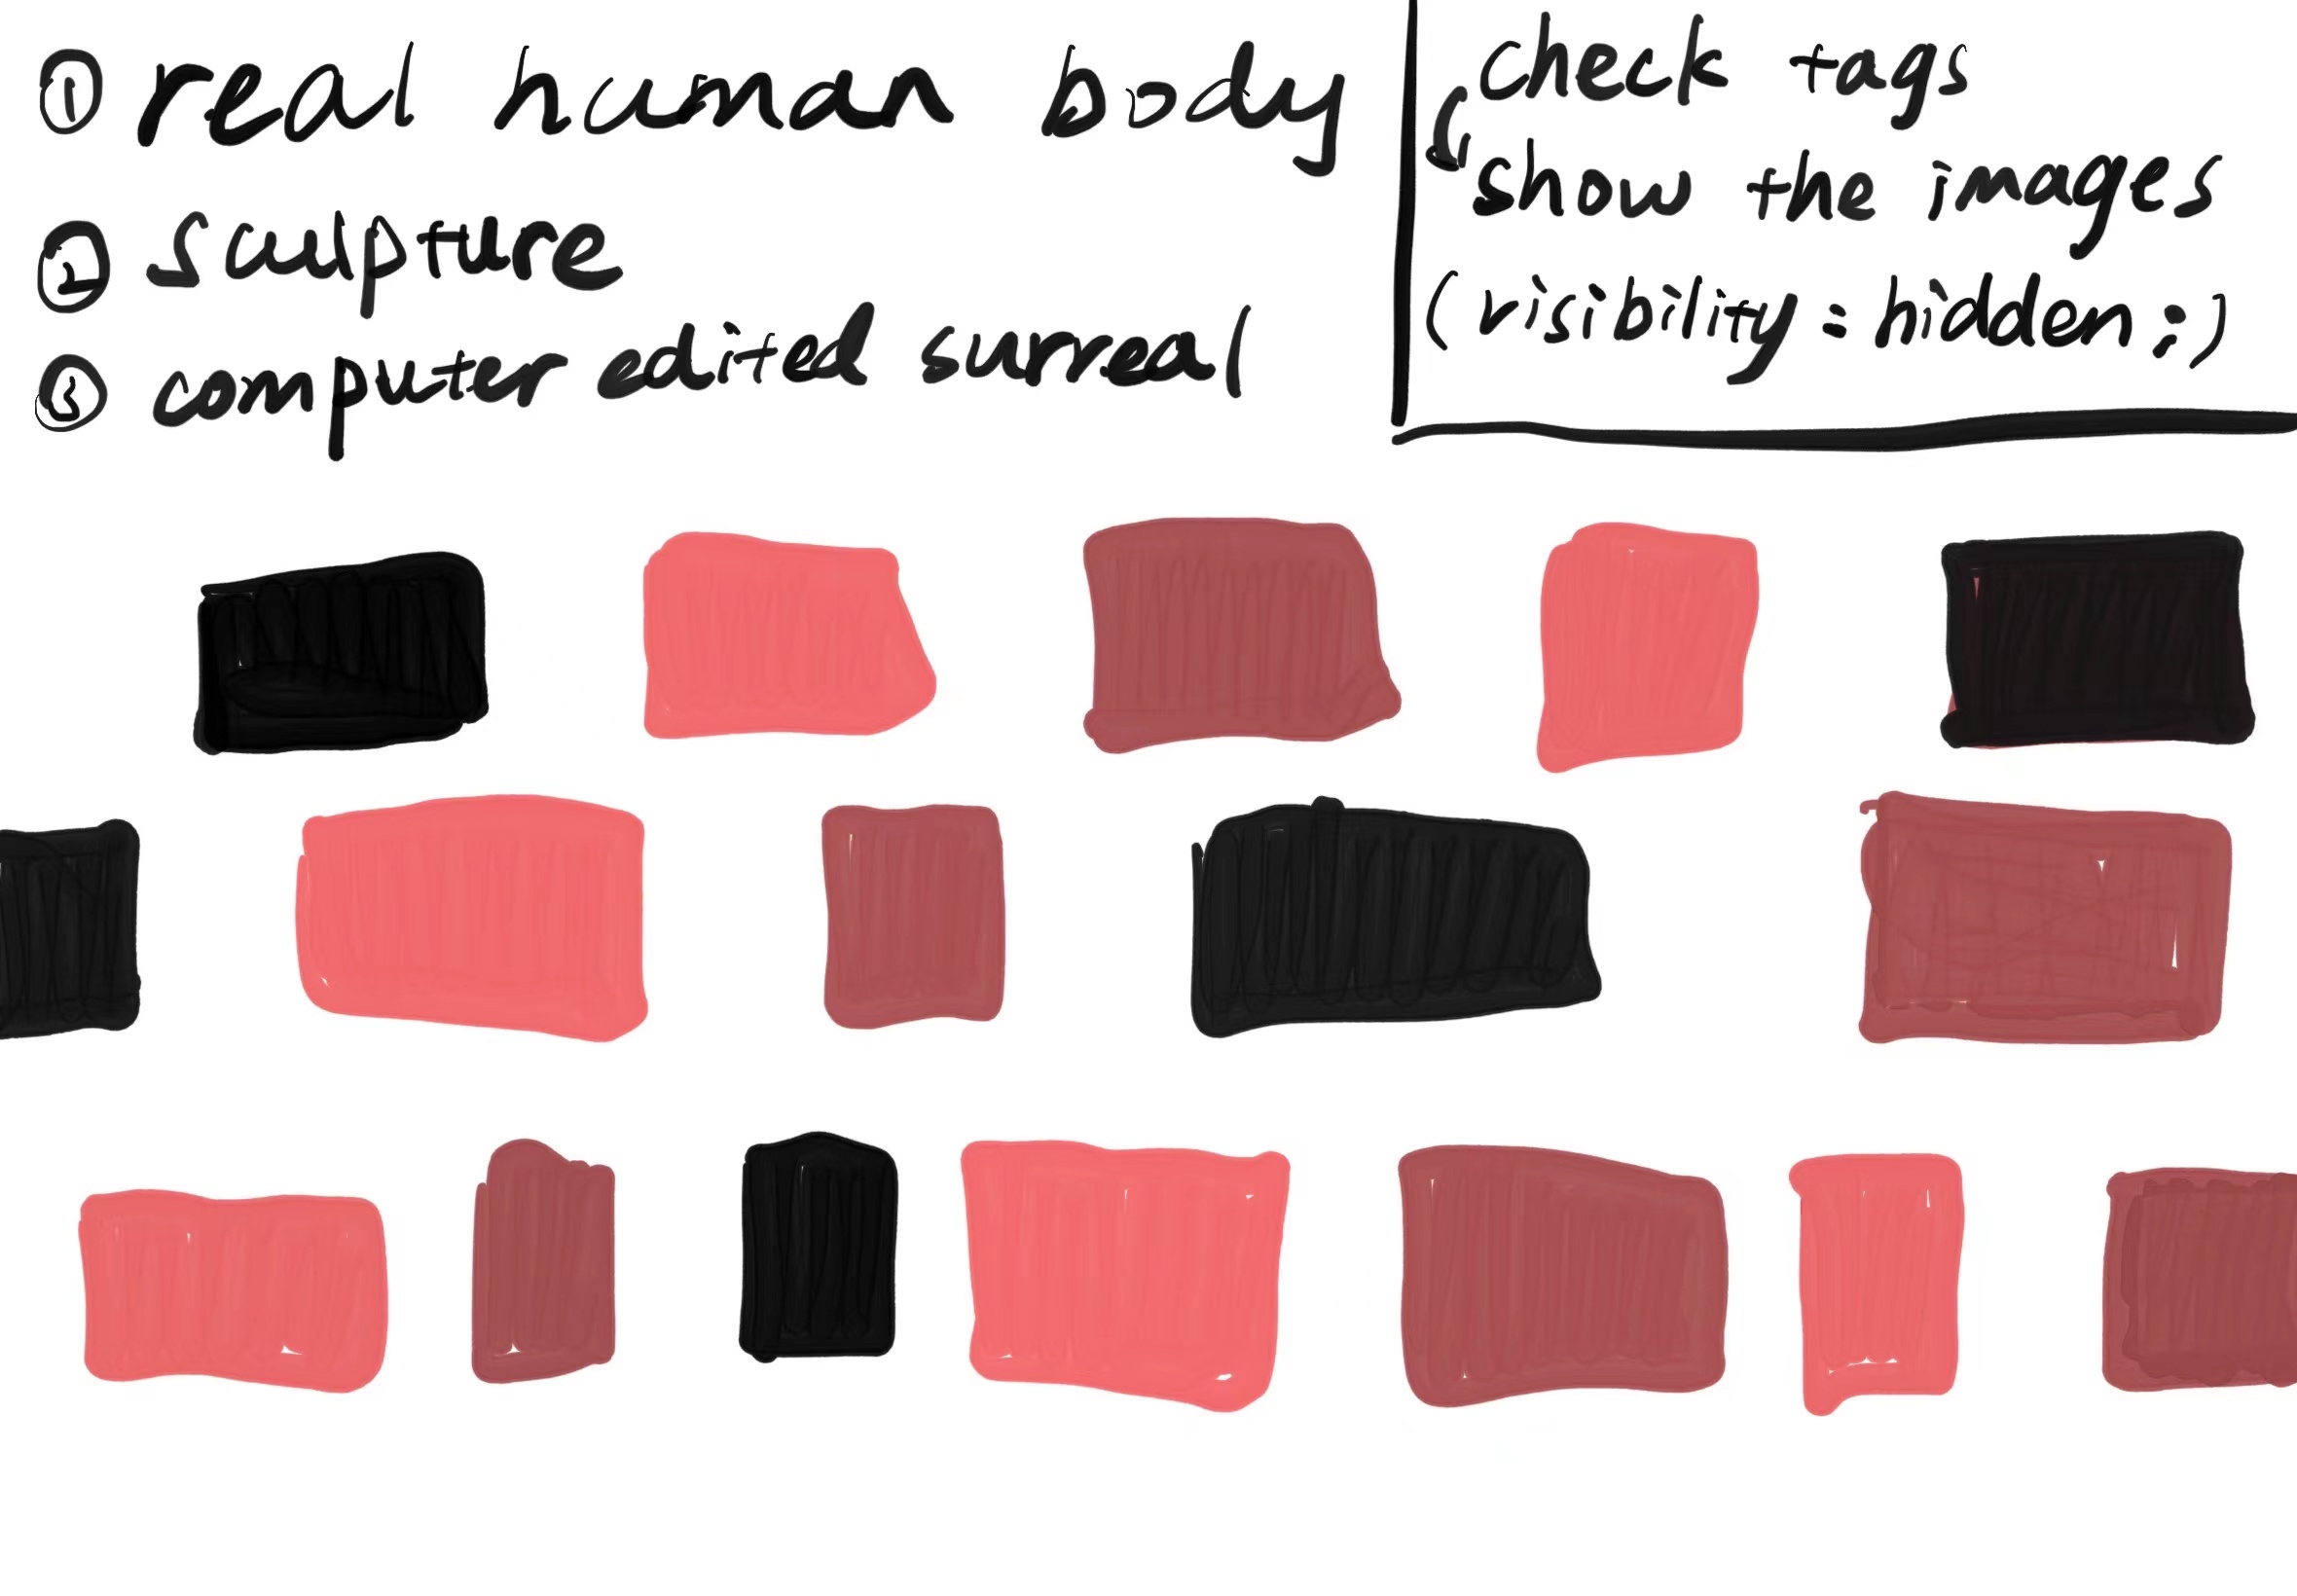 ① real human body
② sculpture
③ computer edited surreal
check tags
show the images
(visibility = hidden;)